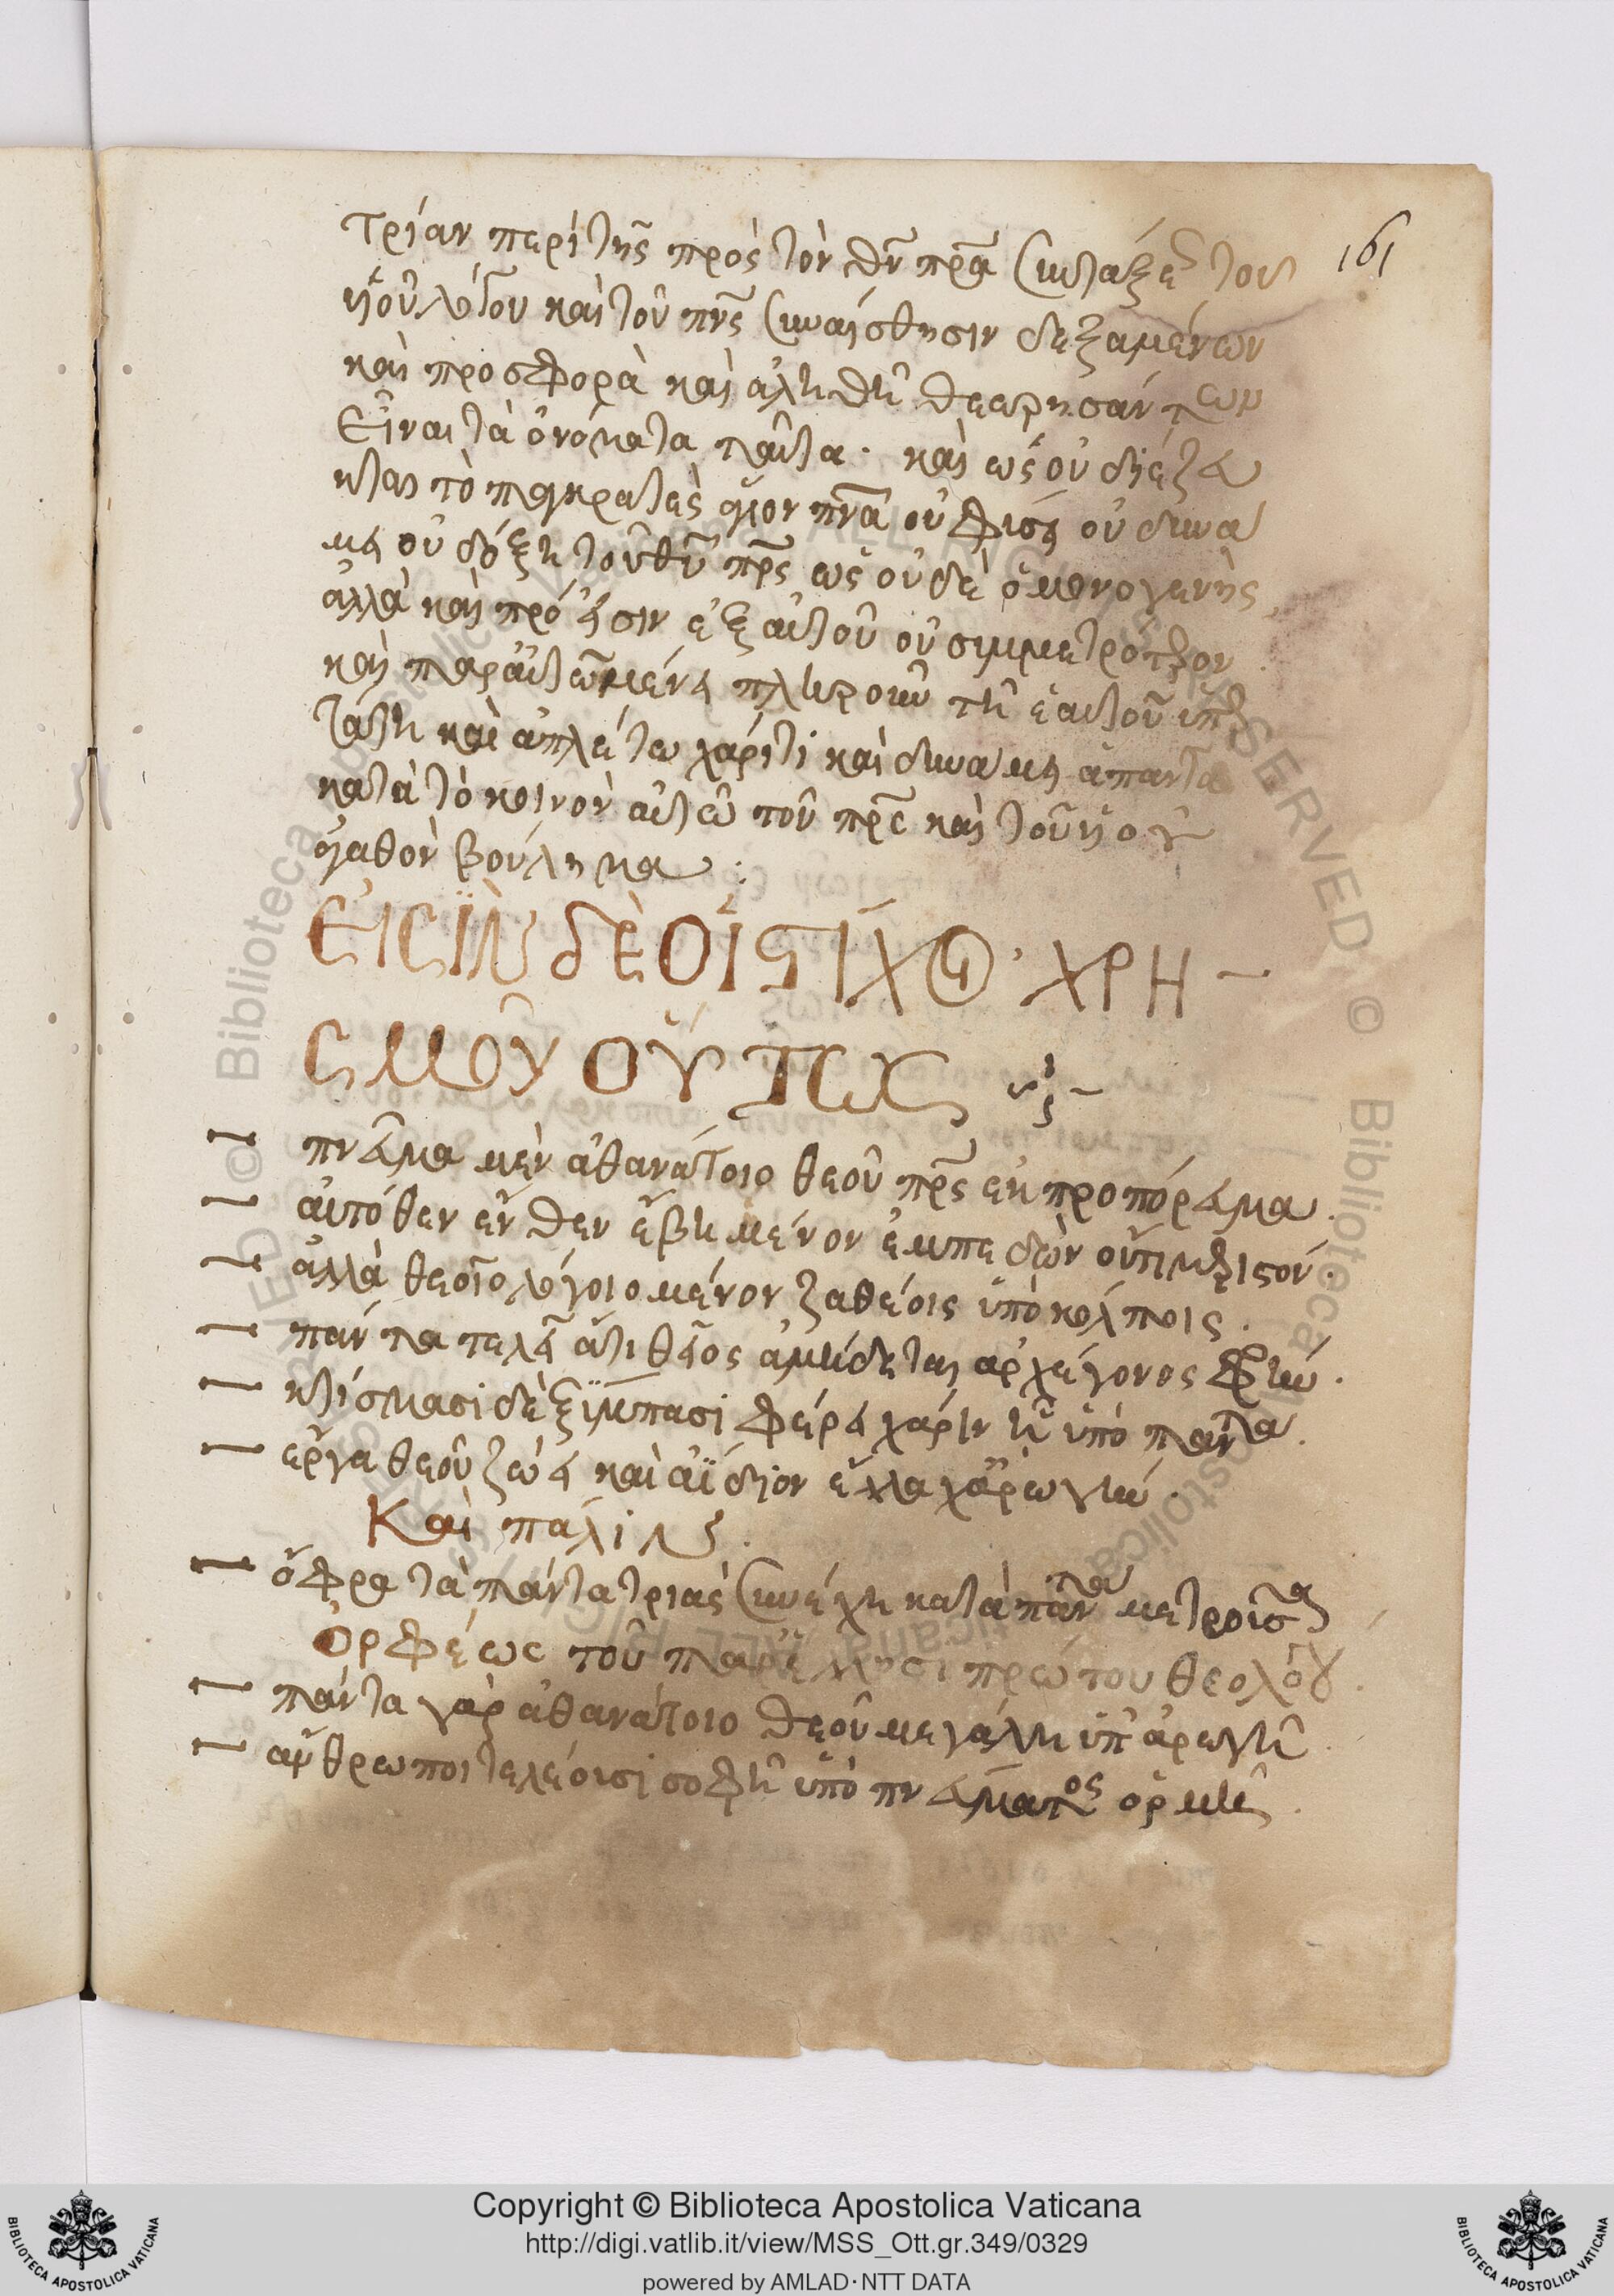 161
τρίαν περὶ τῆς πρὸς τὸν θν πρα συντάξε τοῦ
υἱοῦ λόγου καὶ τοῦ πνς συναίσθησιν δεξαμένων
καὶ προσφορὰ καὶ ἀληθῆ θεωρησάντων
εἶναι τὰ ὀνόματα ταῦτα · καὶ ὡς οὐ διέζευ
κται τὸ παγκρατὲς ἅγιον πνα οὐ φύσει οὐ δυνα
μει οὐ δόξη τοῦ θυ πρς ὡς οὐδὲ ὁ μονογενὴς
ἀλλὰ καὶ πρόεισιν ἐξ αὐτοῦ οὐ
καὶ παρ αὐτῶ μένει πληροῦν τῆ ἑαυτοῦ
καὶ ἀπλέτω χάριτι καὶ δυναμει ἅπαντα
κατὰ τὸ κοινὸν αὐτῶ τοῦ πρς καὶ τοῦ υἱοῦ
ἀγαθὸν βούλημα :
ΕΙCΙΝ δὲ ΟΙ CΤΙΧΟΙ · ΧΡΗ –
CΜΟΥ ΟΥΤΩC
πνεῦμα μὲν ἀθανάτοιο θεοῦ πρς ἐκπροπόρευμα .
αὐτόθεν ἔνθεν ἔβη μένον ἔμπεδον οὔτι μεριστόν .
ἀλλὰ θεοῖο λόγοιο μένον ζαθέοις ὑπὸ κόλποις .
πάντα τελεῖ ἀρχέγονος
κτίσμασι δὲ ξύμπασι φέρει χάριν ἧ ὑπὸ πάντα .
ἔργα θεοῦ ζώει καὶ ἀΐδιον ἔλλαχ ἀρωγὴν .
Καὶ πάλιν .
ὄφρα τὰ πάντα τριὰς συνέχη κατὰ πάντα μετροῦσα
Ὀρφέως τοῦ παρ ἕλλησι πρώτου θεολόγου .
πάντα γὰρ ἀθανάτοιο θεοῦ μεγάλη ὑπ ἀρωγῆ .
ἄνθρωποι τελέουσι σοφῆ ὑπὸ πνεύματος ὁρμῆ .
Copyright © Biblioteca Apostolica Vaticana
http://digi.vatlib.it/view/MSS_Ott.gr.349/0329
powered by AMLAD·NTT DATA
BIBLIOTECA APOSTOLICA VATICANA
BIBLIOTECA APOSTOLICA VATICANA